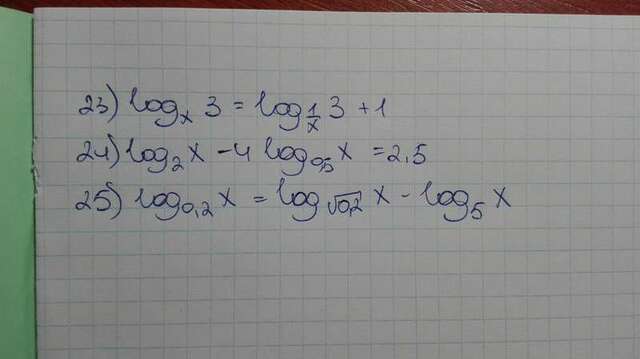 23) log_x 3 = log_{1/x} 3 + 1
24) log_2 x - 4 log_{0,5} x = 2,5
25) log_{0,2} x = log_{√0,2} x - log_5 x